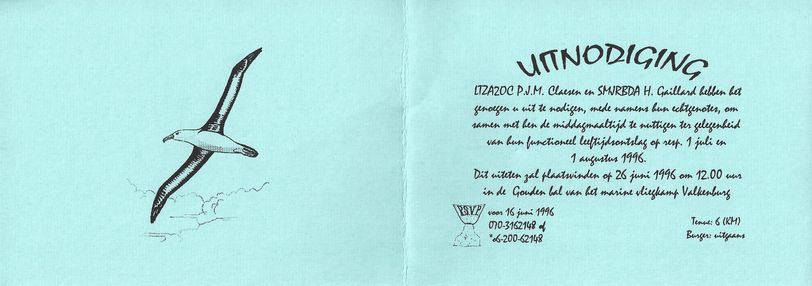 UITNODIGING
LTZA2OC P.J.M. Claesen en SMJRBDA H. Gaillard hebben het
genoegen u uit te nodigen, mede namens hun echtgenotes, om
samen met hen de middagmaaltijd te nuttigen ter gelegenheid
van hun functioneel leeftijdsontslag op resp. 1 juli en
1 augustus 1996.
Dit uiteten zal plaatsvinden op 26 juni 1996 om 12.00 uur
in de Gouden bal van het marine vliegkamp Valkenburg
R.S.V.P. voor 16 juni 1996
070-3162148 of
*06-200-62148
Tenue: 6 (KM)
Burger: uitgaans